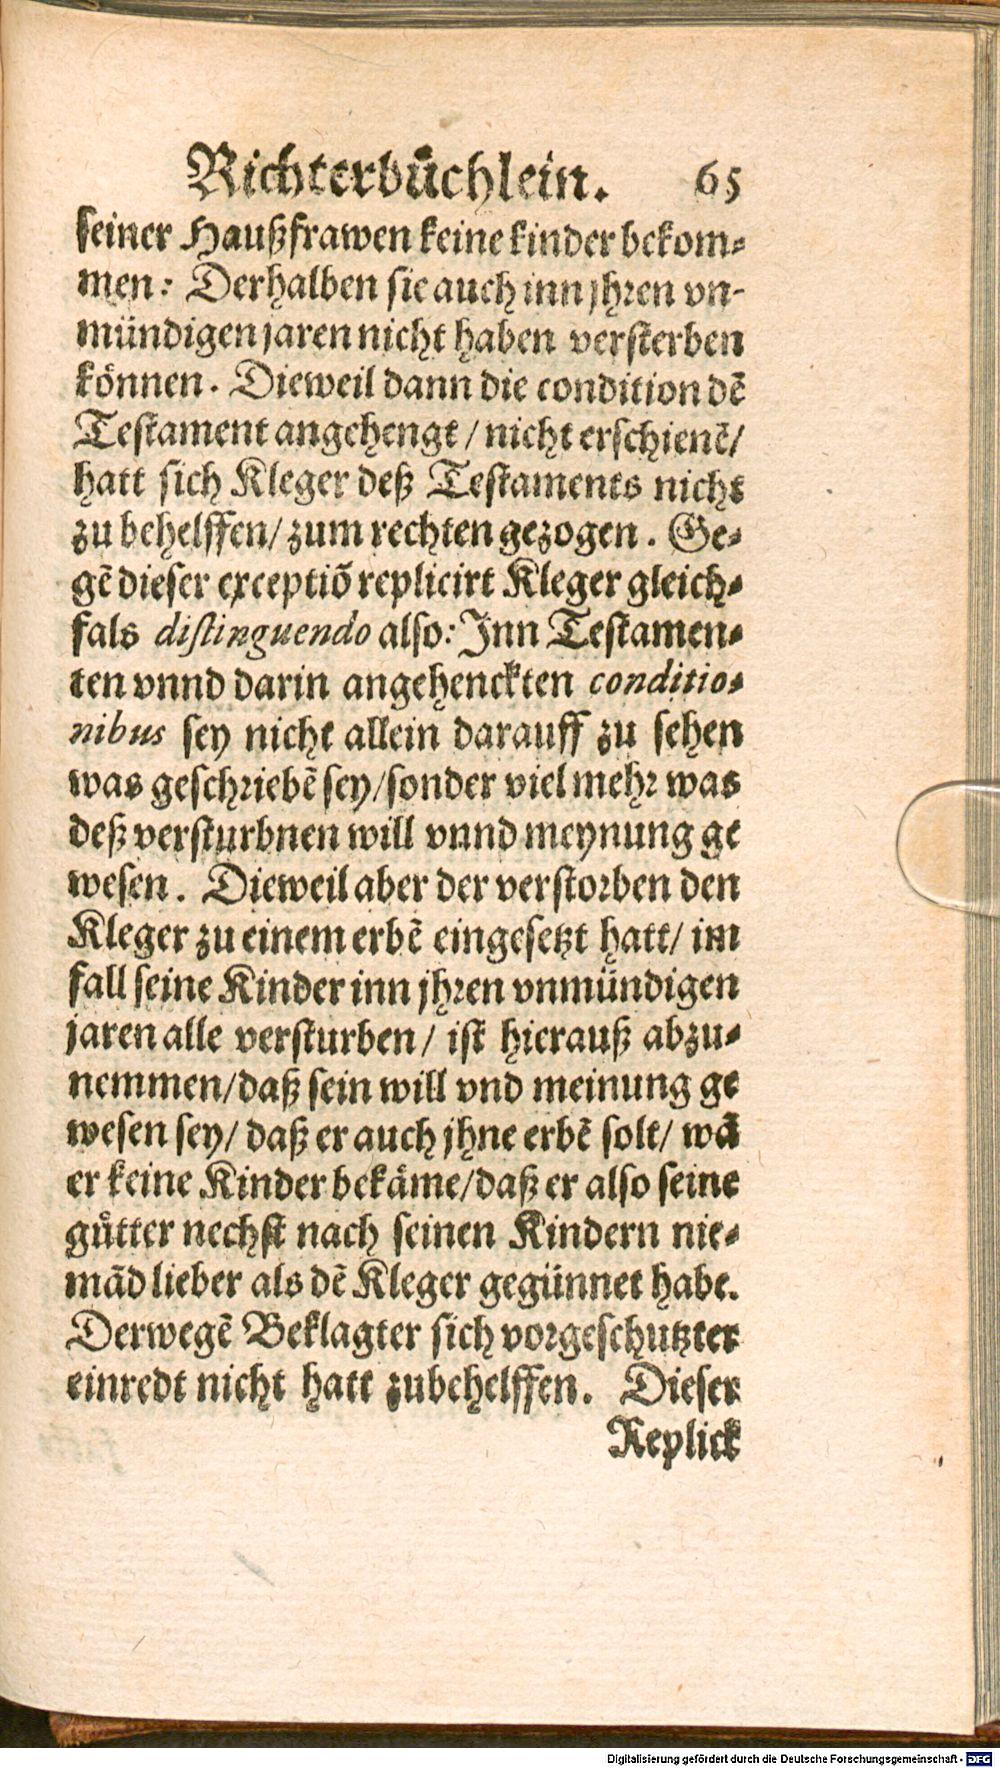 Richterbüchlein. 65
seiner Haußfrawen keine kinder bekom-
men: Derhalben sie auch inn jhren vn-
mündigen jaren nicht haben versterben
können. Dieweil dann die condition dē
Testament angehengt / nicht erschienē/
hatt sich Kleger deß Testaments nicht
zu behelffen/ zum rechten gezogen. Ge-
gē dieser exceptiō replicirt Kleger gleich-
fals distinguendo also: Inn Testamen-
ten vnnd darin angehenckten conditio-
nibus sey nicht allein darauff zu sehen
was geschriebē sey/sonder viel mehr was
deß versturbnen will vnnd meynung ge
wesen. Dieweil aber der verstorben den
Kleger zu einem erbē eingesetzt hatt/ im
fall seine Kinder inn jhren vnmündigen
jaren alle versturben/ ist hierauß abzu-
nemmen/daß sein will vnd meinung ge
wesen sey/ daß er auch jhne erbē solt/ wā
er keine Kinder bekäme/daß er also seine
gütter nechst nach seinen Kindern nie-
mād lieber als dē Kleger gegünnet habe.
Derwegē Beklagter sich vorgeschutzter
einredt nicht hatt zubehelffen. Dieser
Replick
Digitalisierung gefördert durch die Deutsche Forschungsgemeinschaft - DFG